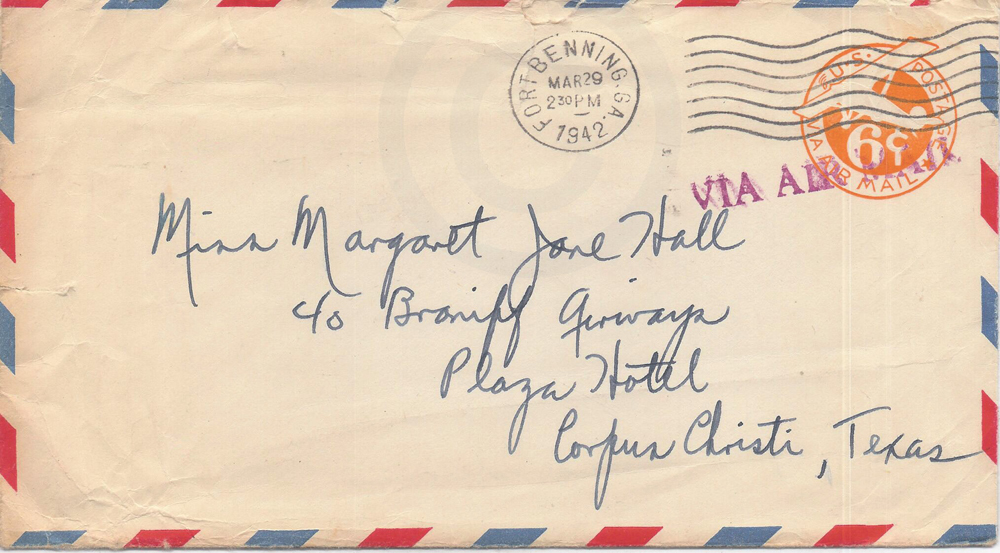 FORT BENNING, GA.
MAR 29
2 30 PM
1942
U.S. POSTAGE
6¢
VIA AIR MAIL
VIA AIR MAIL
Miss Margaret Jane Hall
c/o Braniff Airways
Plaza Hotel
Corpus Christi, Texas